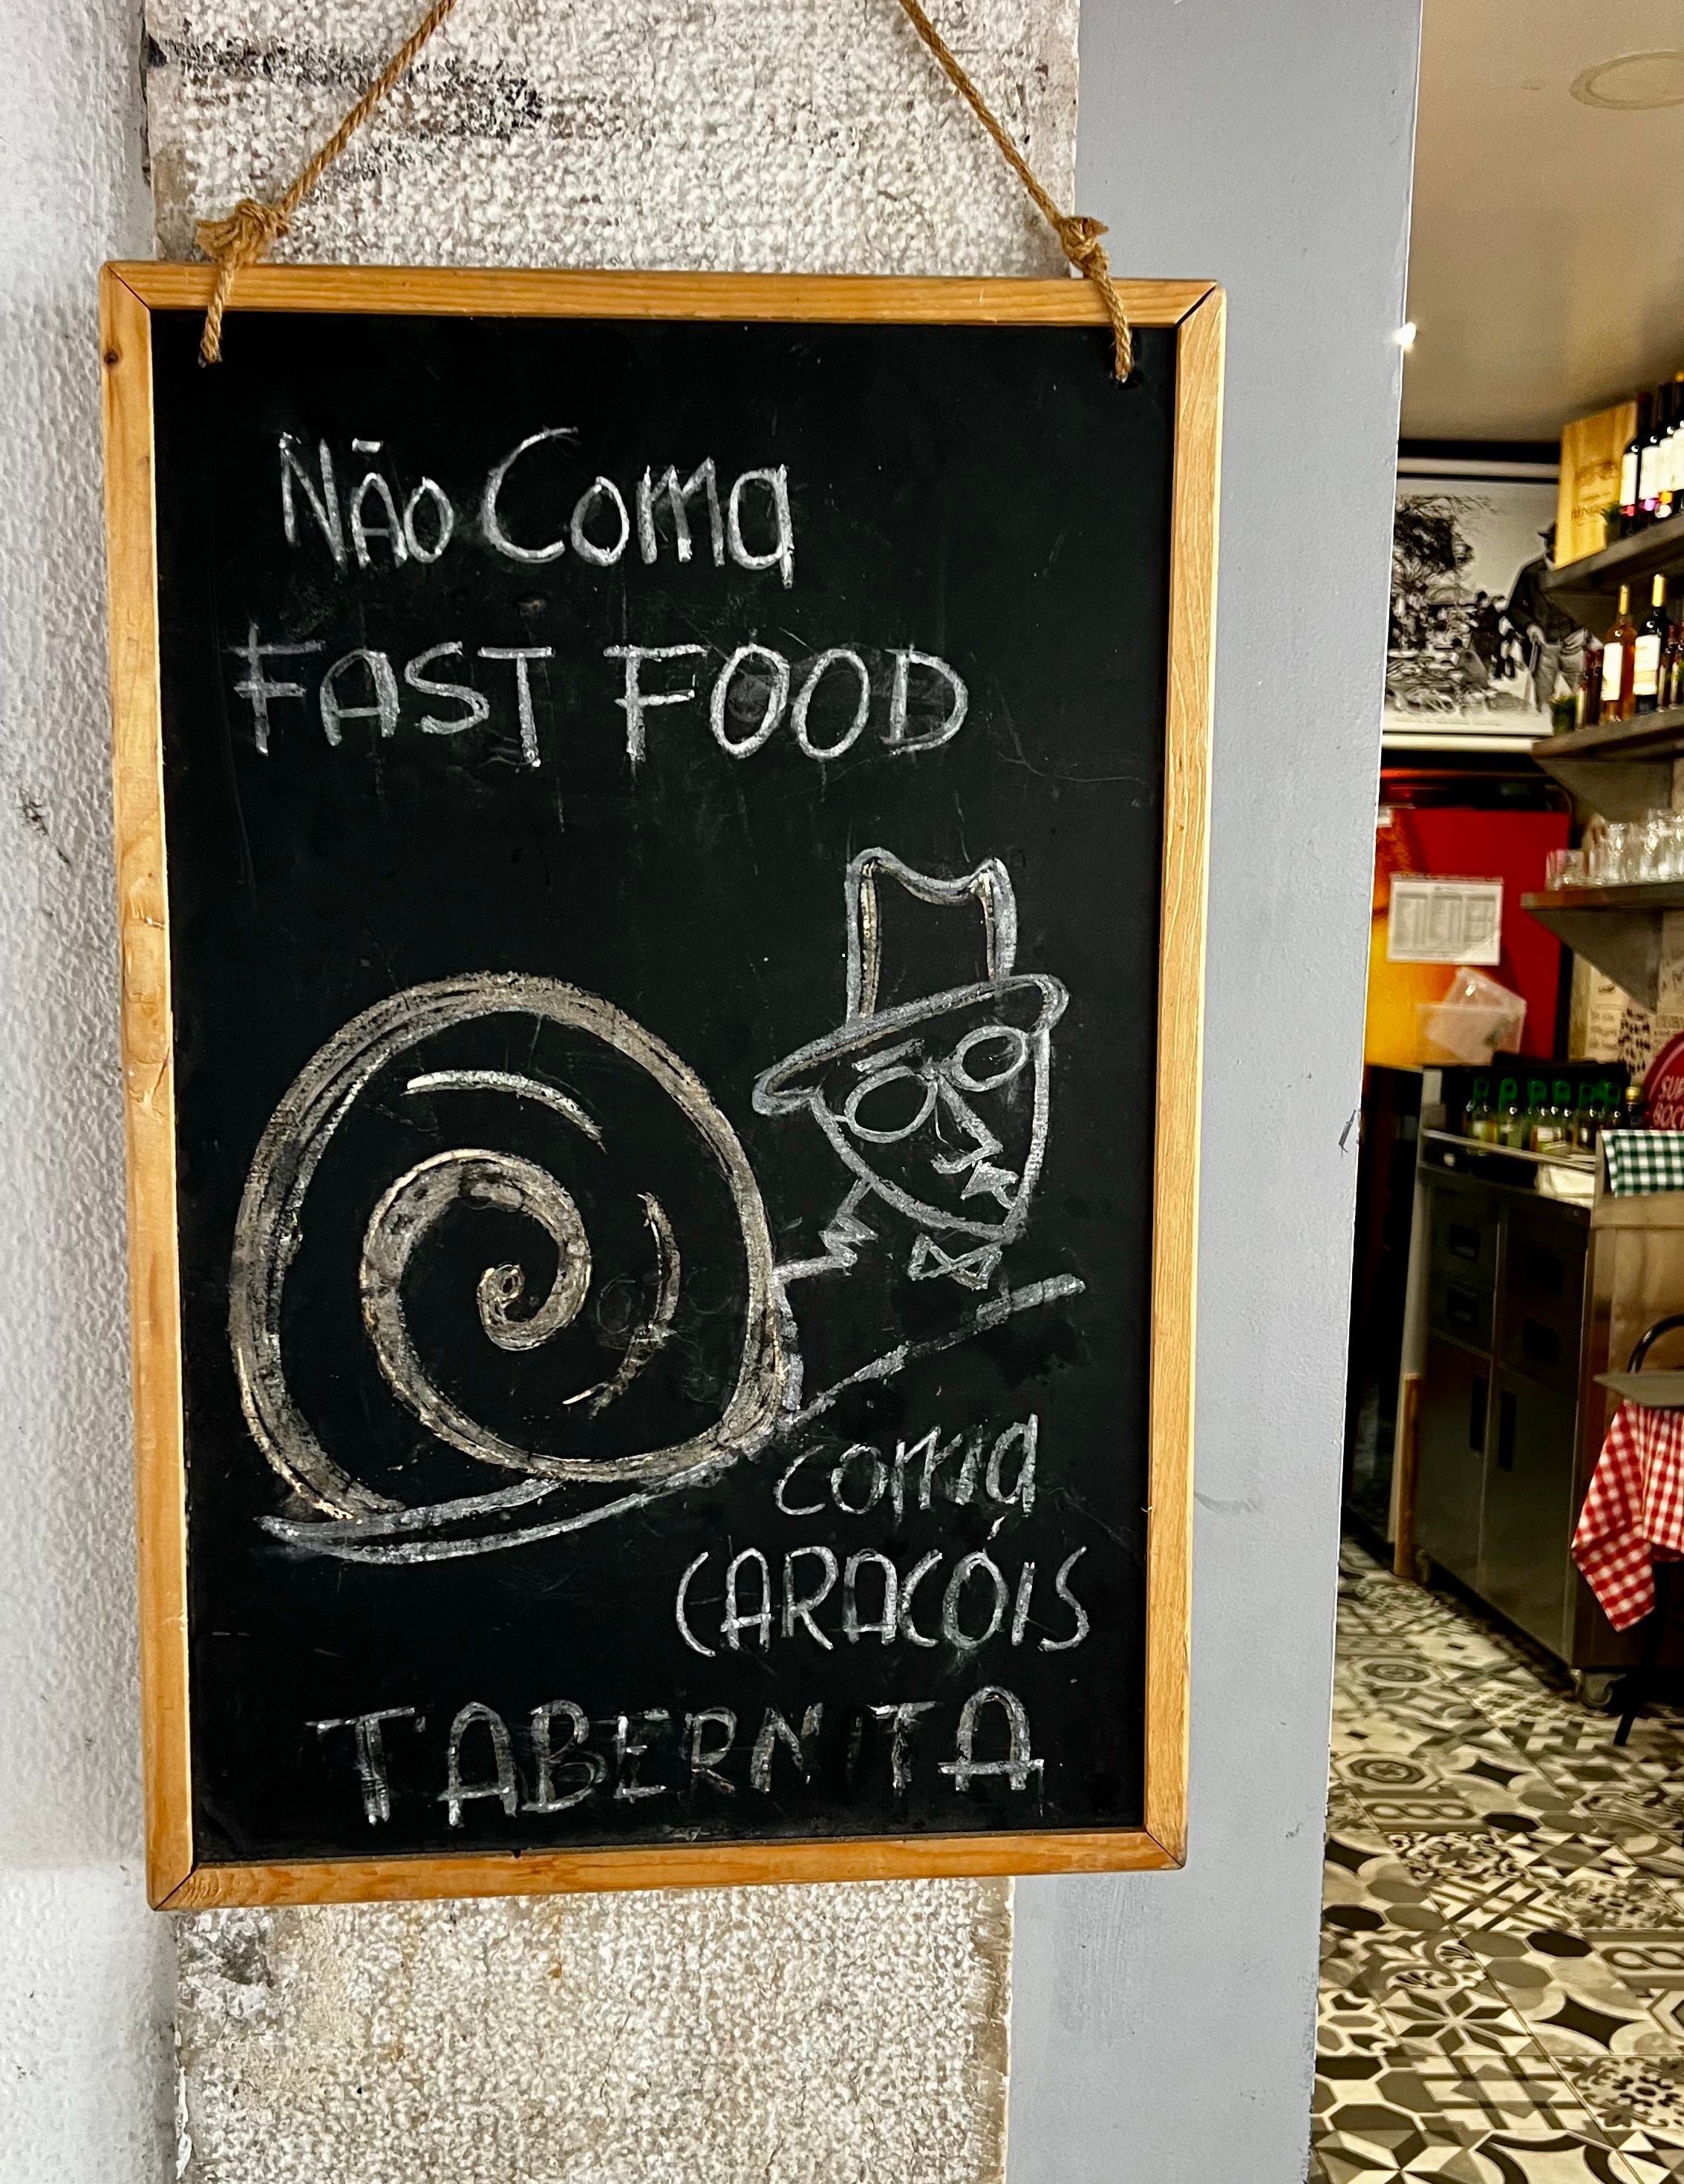 Não Coma
FAST FOOD
coma
CARACÓIS
TABERNITA